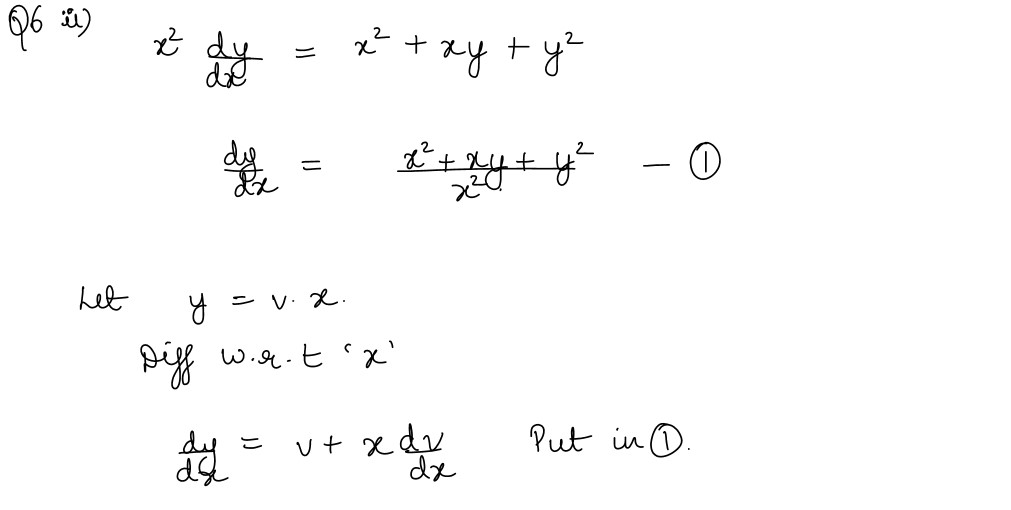 Q6 ii)
x² dy/dx = x² + xy + y²
dy/dx = (x² + xy + y²)/x² — ①
Let y = v. x.
Diff w.r.t 'x'
dy/dx = v + x dv/dx Put in ①.